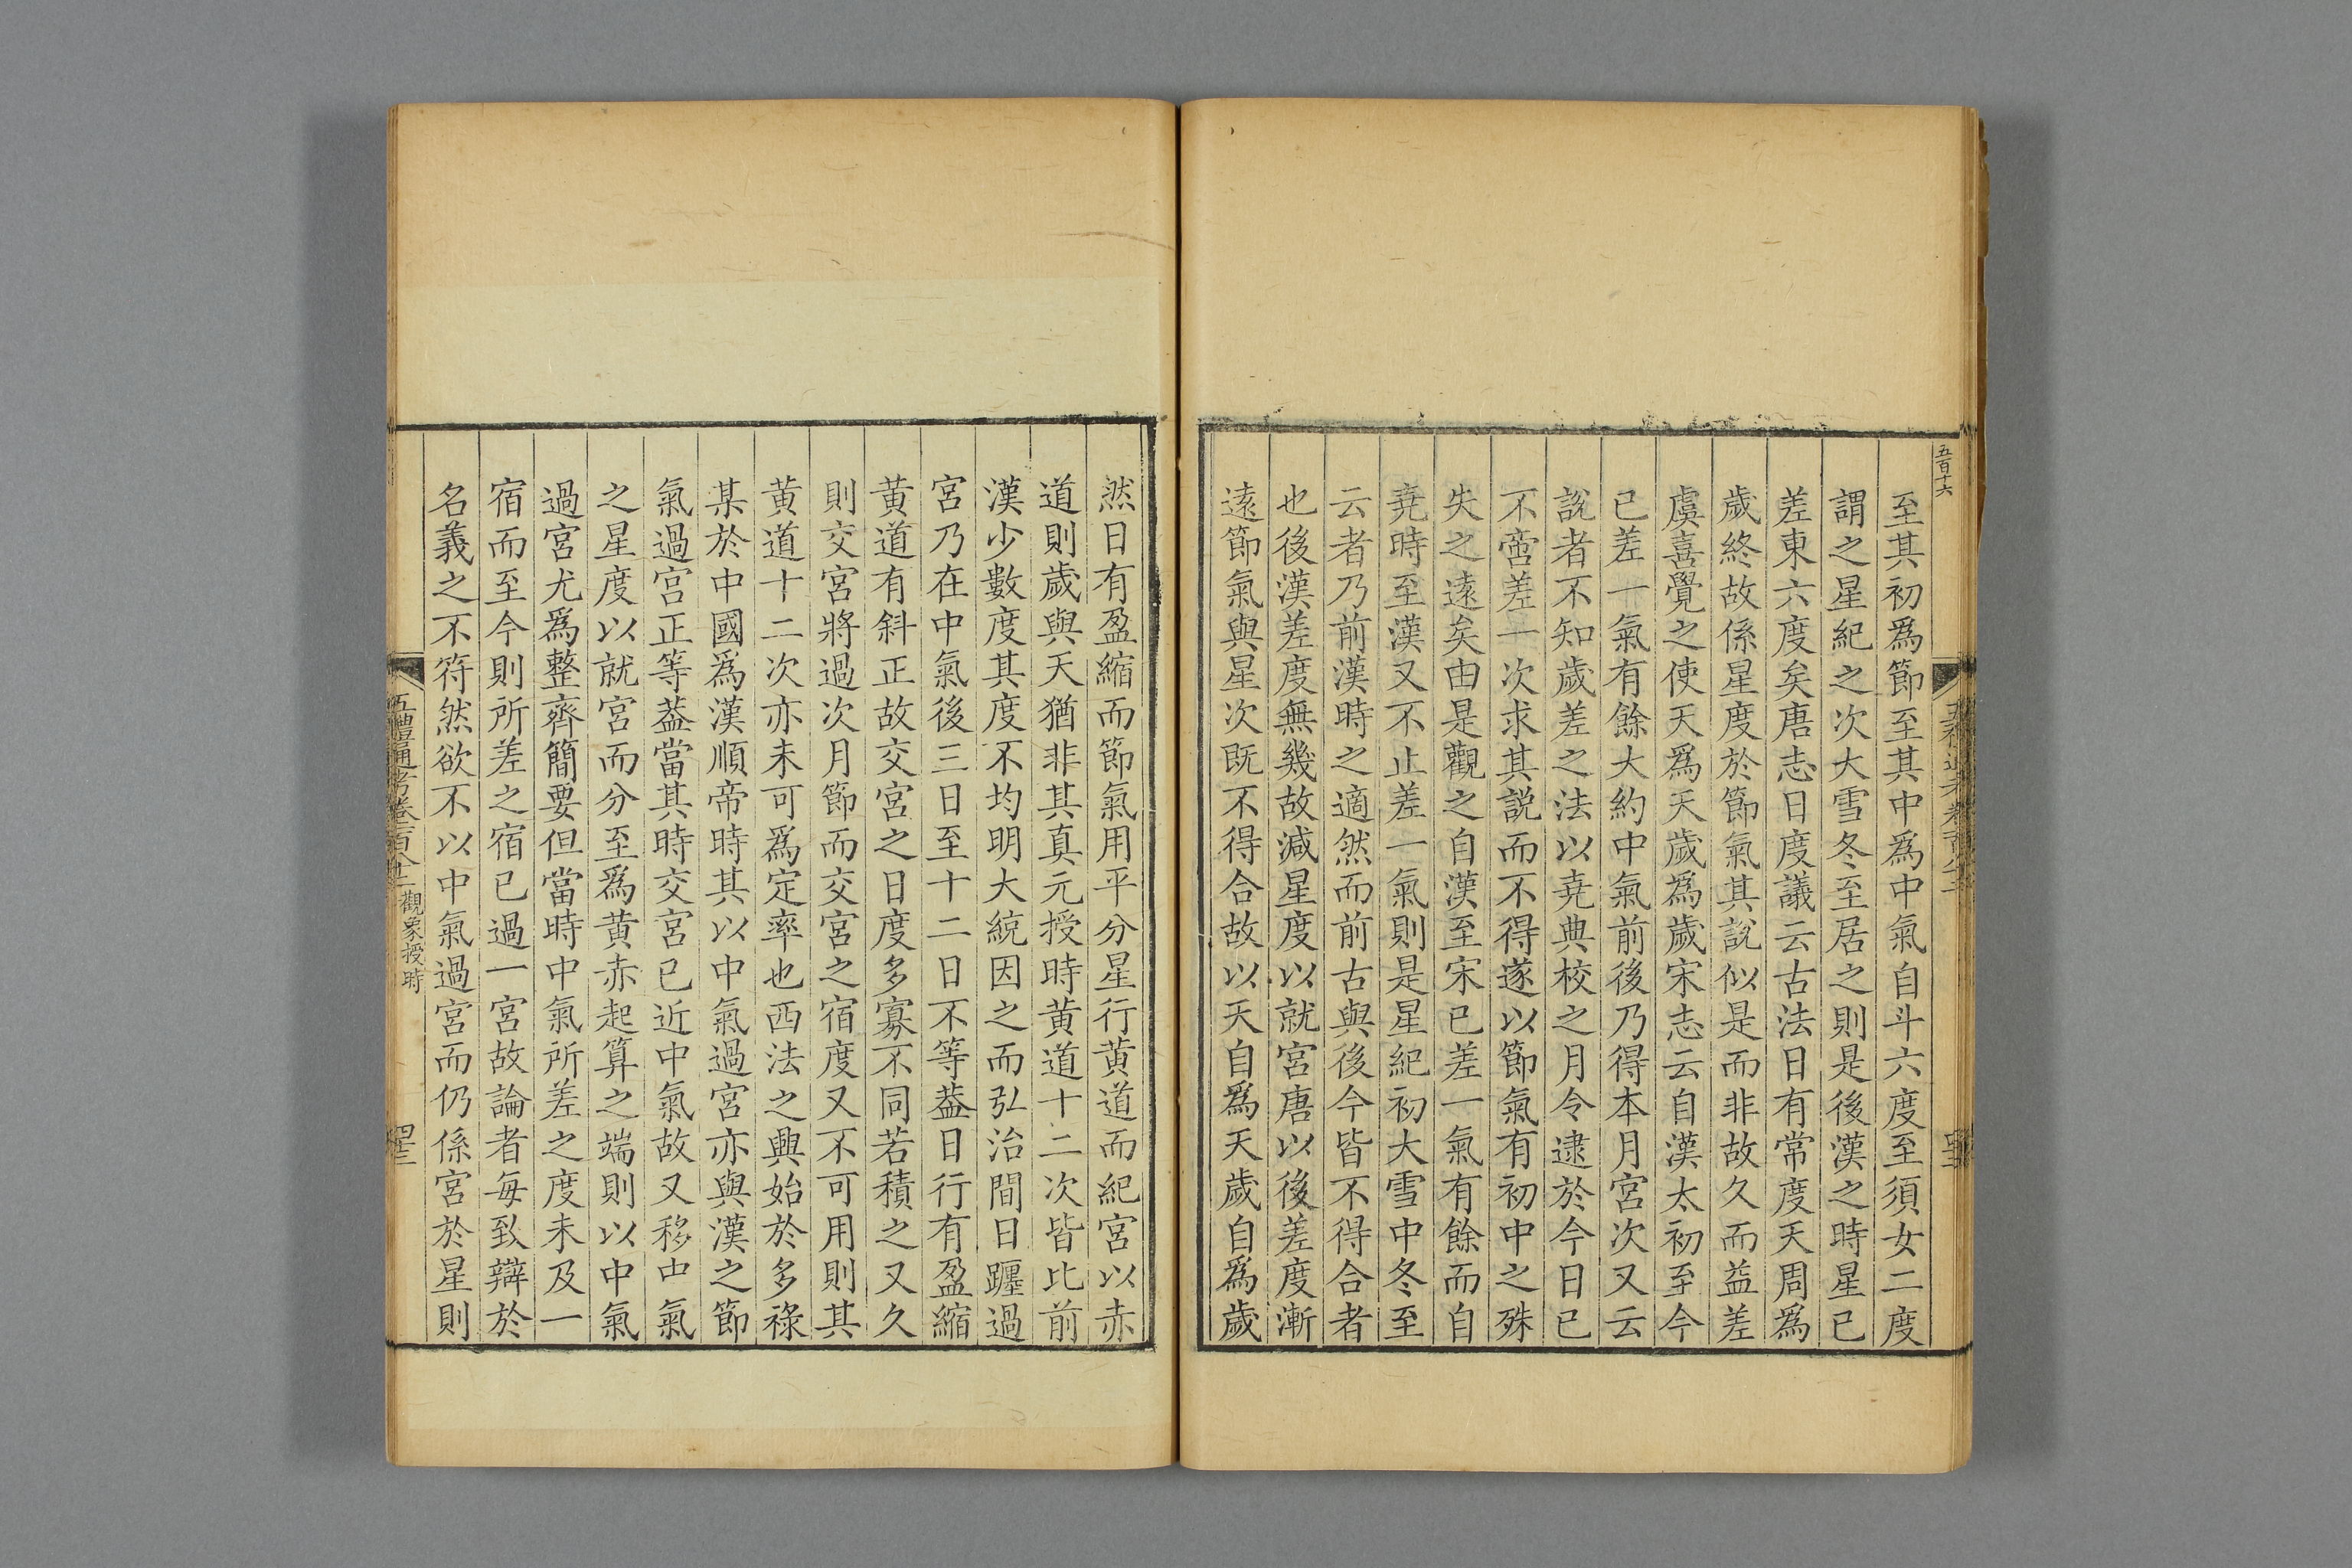 五百十六
至其初爲節至其中爲中氣自斗六度至須女二度
謂之星紀之次大雪冬至居之則是後漢之時星已
差東六度矣唐志日度議云古法日有常度天周爲
歲終故係星度於節氣其說似是而非故久而益差
虞喜覺之使天爲天歲爲歲宋志云自漢太初至今
已差一氣有餘大約中氣前後乃得本月宮次又云
說者不知歲差之法以堯典校之月令逮於今日已
不啻差一次求其説而不得遂以節氣有初中之殊
失之遠矣由是觀之自漢至宋已差一氣有餘而自
堯時至漢又不止差一氣則是星紀初大雪中冬至
云者乃前漢時之適然而前古與後今皆不得合者
也後漢差度無幾故減星度以就宮唐以後差度漸
遠節氣與星次既不得合故以天自爲天歲自爲歲
然日有盈縮而節氣用平分星行黄道而紀宮以赤
道則歲與天猶非其真元授時黄道十二次皆比前
漢少數度其度不均明大統因之而弘治間日躔過
宮乃在中氣後三日至十二日不等葢日行有盈縮
黄道有斜正故交宮之日度多寡不同若積之又久
則交宮將過次月節而交宮之宿度又不可用則其
黄道十二次亦未可爲定率也西法之興始於多祿
某於中國爲漢順帝時其以中氣過宮亦與漢之節
氣過宮正等葢當其時交宮已近中氣故又移中氣
之星度以就宮而分至爲黄赤起算之端則以中氣
過宮尤爲整齊簡要但當時中氣所差之度未及一
宿而至今則所差之宿已過一宮故論者每致辯於
名義之不符然欲不以中氣過宮而仍係宮於星則
五禮通考卷一百八十二 觀象授時